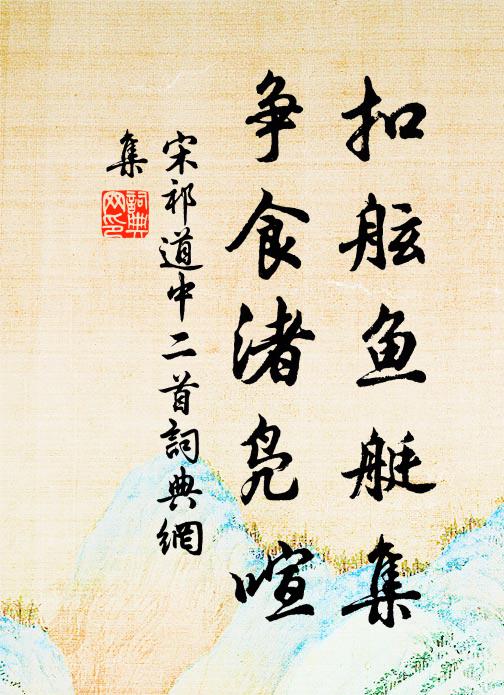 扣舷鱼艇集
争食渚凫喧
宋祁道中二首詞典網
集
詞典
网印